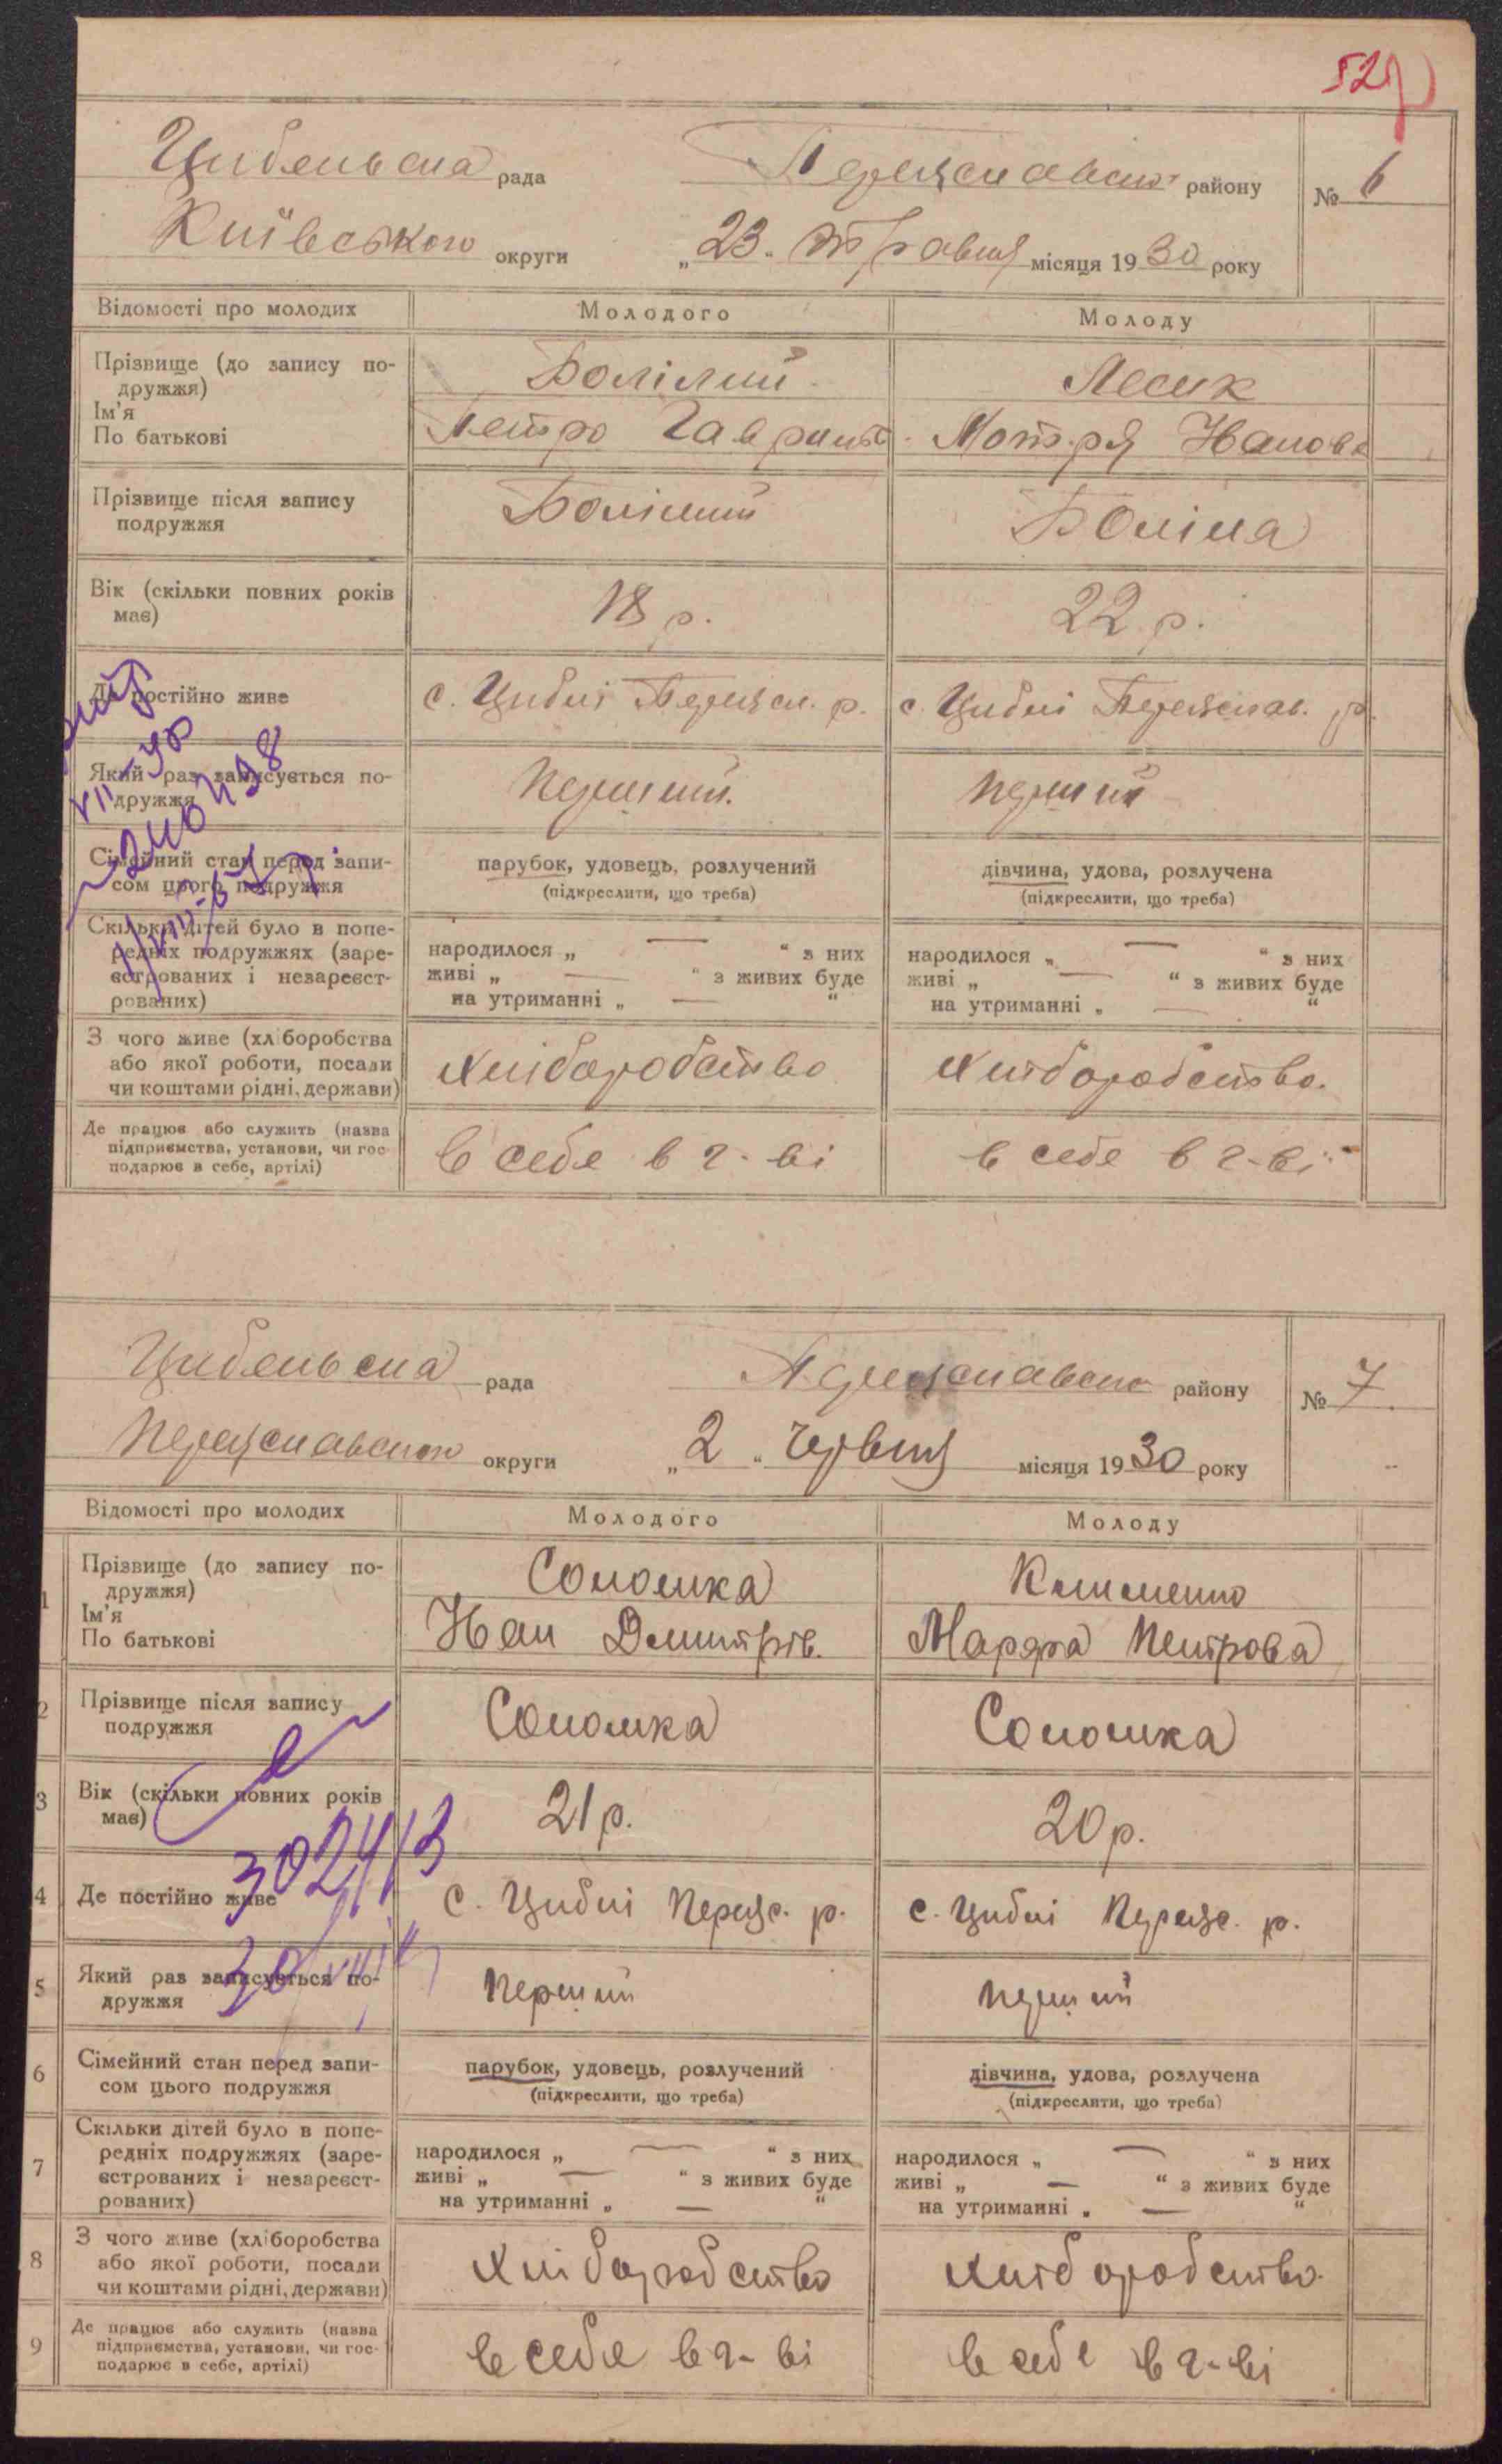 529
Цибельська рада Переяславсько району № 6
Київського округи „23" Травня місяця 1930 року
Відомості про молодих Молодого Молоду
Прізвище (до запису по- Болілий Лесик
дружжя)
Ім'я
По батькові Петро Гаврильо. Мотря Иванова
Прізвище після запису Болілий Боліла
подружжя
Вік (скільки повних років 18 р. 22 р.
має)
Де постійно живе с. Циблі Переясл. р. с. Циблі Переяслав. р.
Який раз записується по- перший. перший
дружжя
Сімейний стан перед запи- парубок, удовець, розлучений дівчина, удова, розлучена
сом цього подружжя (підкреслити, що треба) (підкреслити, що треба)
Скільки дітей було в попе- народилося „ — “ з них народилося „ — “ з них
редніх подружжях (заре- живі „ — “ з живих буде живі „ — “ з живих буде
єстрованих і незареєст- на утриманні „ — “ на утриманні „ — “
рованих)
З чого живе (хліборобства хліборобство хліборобство.
або якої роботи, посади
чи коштами рідні, держави)
Де працює або служить (назва в себе в г-ві в себе в г-ві
підприємства, установи, чи гос-
подарює в себе, артілі)
Цибельська рада Переяславсько району № 7
Переяславського округи „2" Червня місяця 1930 року
Відомості про молодих Молодого Молоду
1 Прізвище (до запису по- Соломка Клименко
дружжя)
Ім'я
По батькові Иван Дмитрів. Марфа Петрова
2 Прізвище після запису Соломка Соломка
подружжя
3 Вік (скільки повних років 21 р. 20 р.
має)
302413
4 Де постійно живе с. Циблі Переяс. р. с. Циблі Переяс. р.
5 Який раз записується по- перший перший
дружжя
6 Сімейний стан перед запи- парубок, удовець, розлучений дівчина, удова, розлучена
сом цього подружжя (підкреслити, що треба) (підкреслити, що треба)
7 Скільки дітей було в попе- народилося „ — “ з них народилося „ — “ з них
редніх подружжях (заре- живі „ — “ з живих буде живі „ — “ з живих буде
єстрованих і незареєст- на утриманні „ — “ на утриманні „ — “
рованих)
8 З чого живе (хліборобства хліборобство хліборобство
або якої роботи, посади
чи коштами рідні, держави)
9 Де працює або служить (назва в себе в г-ві в себе в г-ві
підприємства, установи, чи гос-
подарює в себе, артілі)